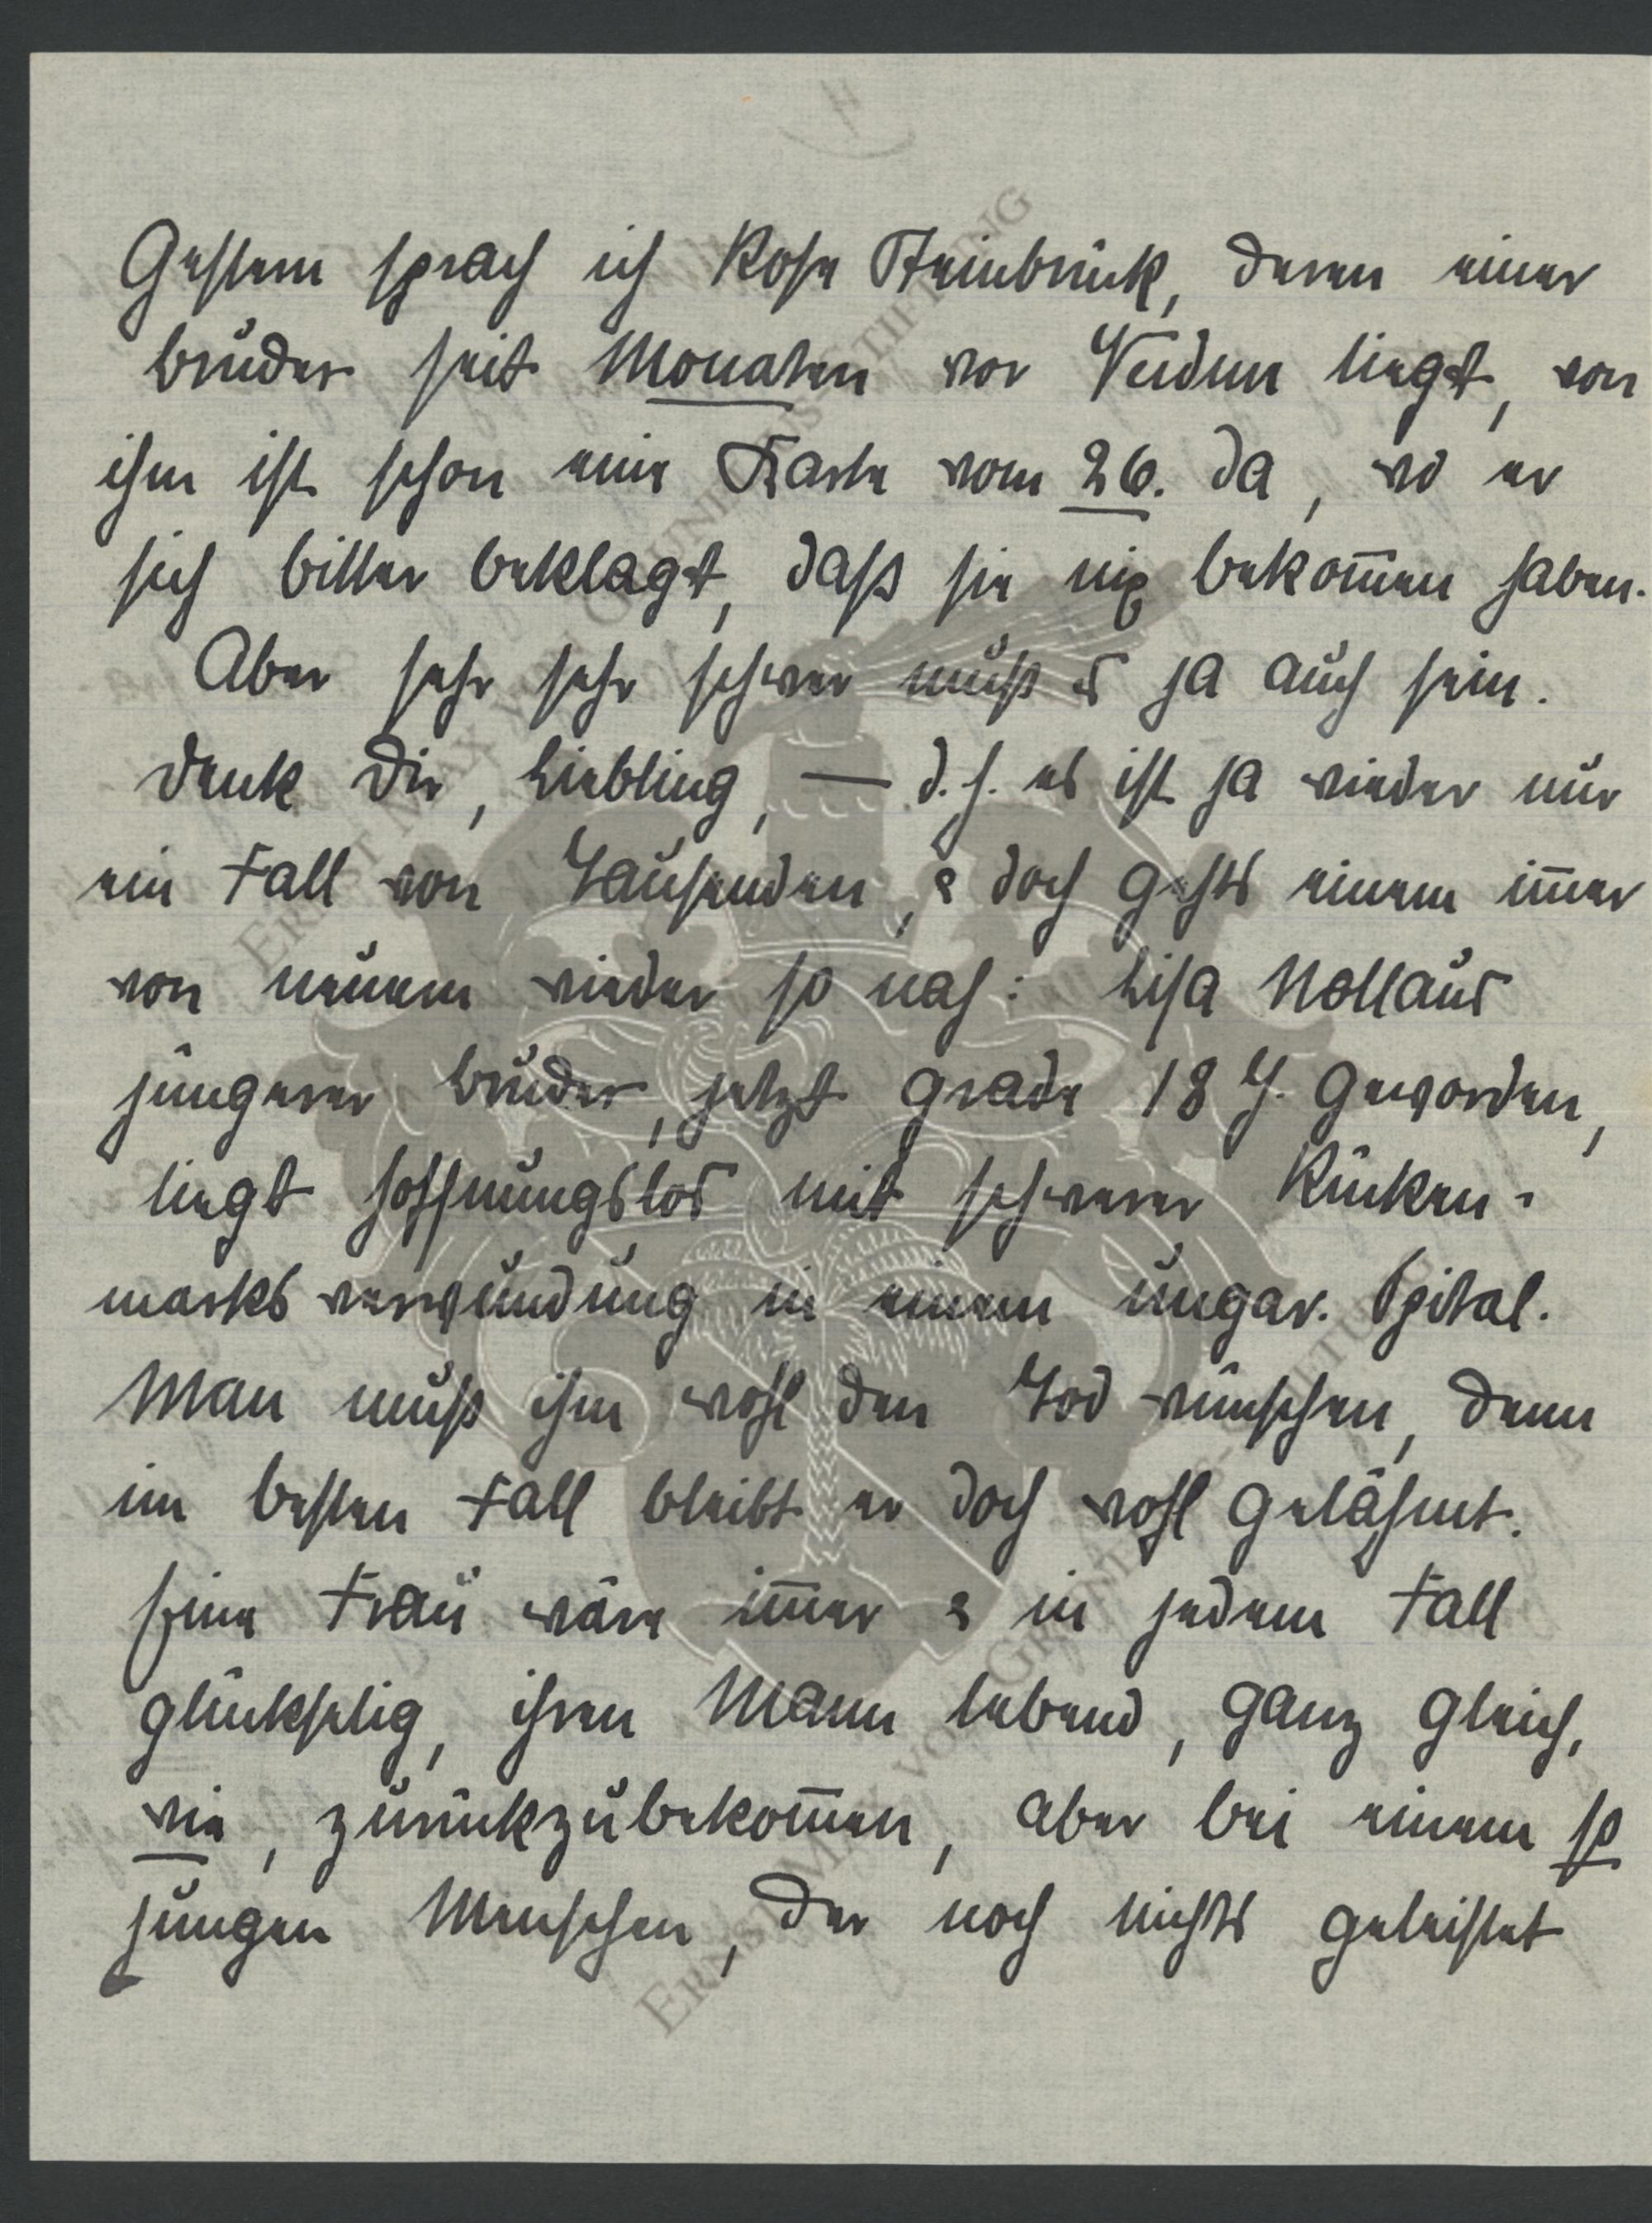 Gestern sprach ich Rose Steinbrück, deren einer
Bruder seit Monaten vor Verdun liegt, von
ihm ist schon eine Karte vom 26. da, wo er
sich bitter beklagt, daß sie nix bekom̅en haben.
Aber sehr sehr schwer muß es ja auch sein.
Denk Dir, Liebling, — d. h. es ist ja wieder nur
ein Fall von Tausenden, & doch gehts einem im̅er
von neuem wieder so nah: Lisa Nollaus
jüngerer Bruder, jetzt grade 18 J. geworden,
liegt hoffnungslos mit schwerer Rücken-
marksverwundung in einem ungar. Spital.
Man muß ihm wohl den Tod wünschen, denn
im besten Fall bleibt er doch wohl gelähmt.
Eine Frau wäre im̅er & in jedem Fall
glückselig, ihren Mann lebend, ganz gleich,
wie, zurückzubekom̅en, aber bei einem so
jungen Menschen, der noch nichts geleistet
ERNST MAX VON GRUNELIUS-STIFTUNG
ERNST MAX VON GRUNELIUS-STIFTUNG